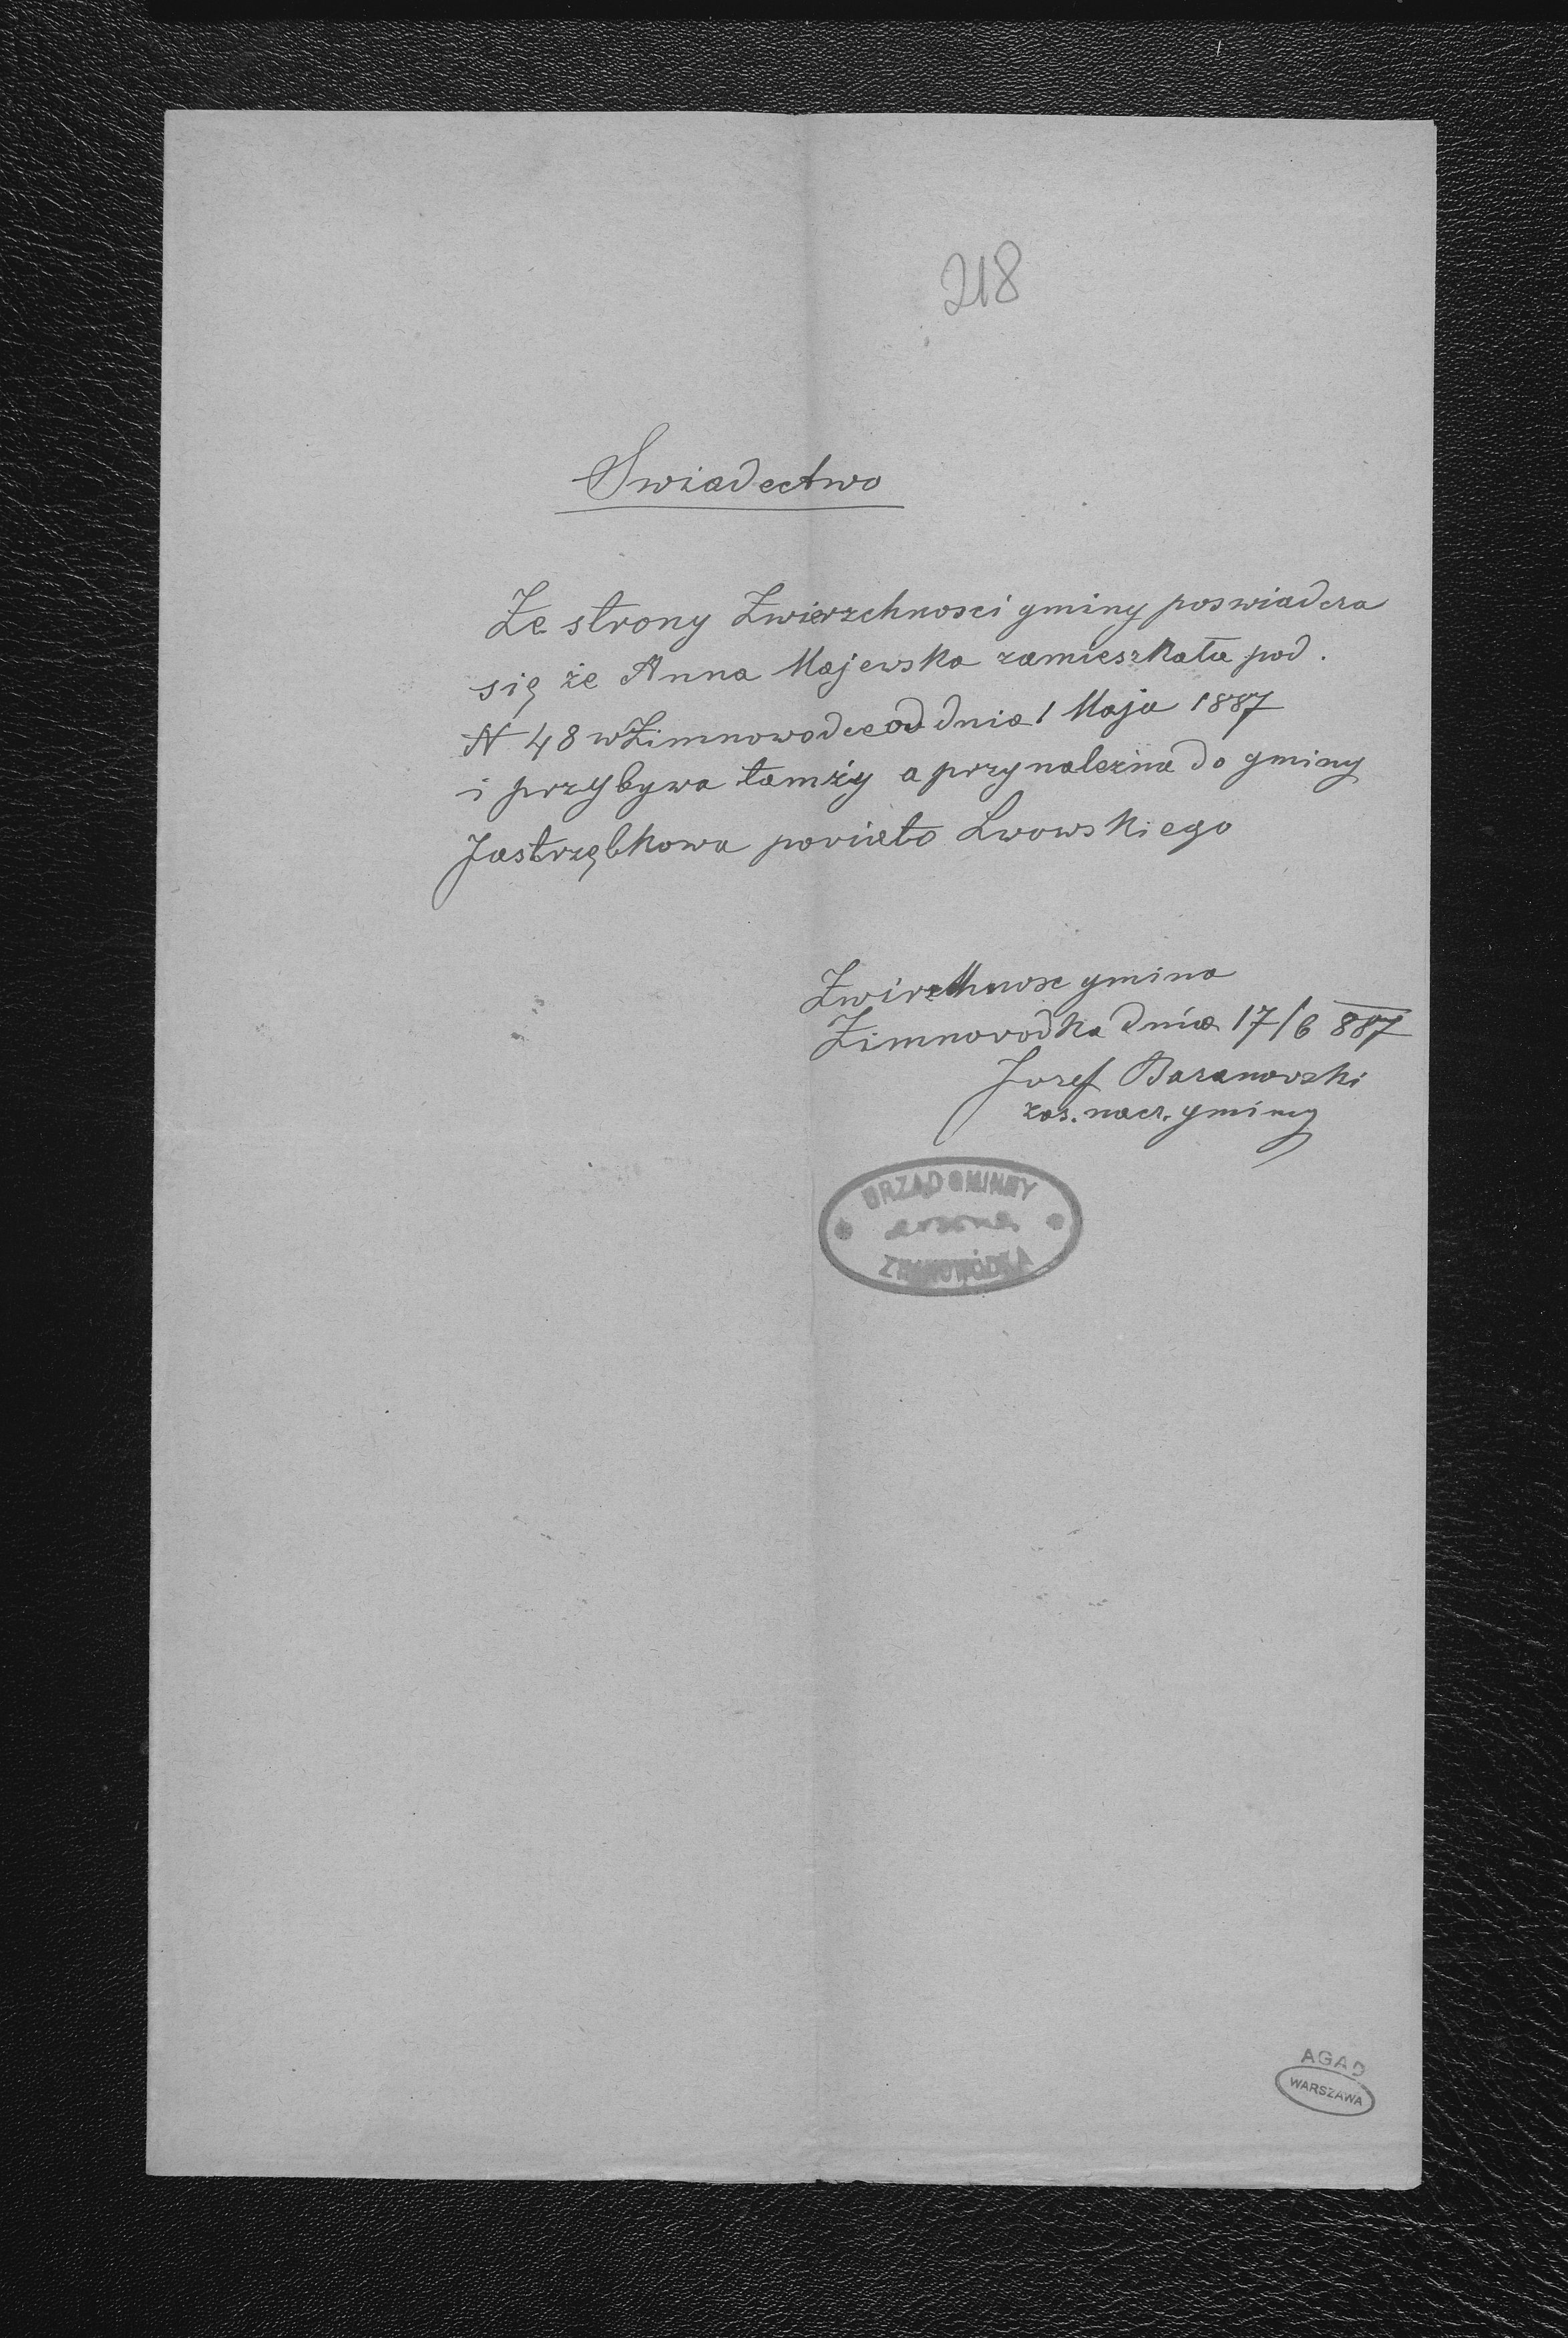 218
Swiadectwo
Ze strony Zwierzchnosci gminy poswiadcza
się że Anna Majewska zamieszkała pod.
N 48 w Zimnowodce od dnia 1 Maja 1887
i przybywa tamży a przynalezna do gminy
Jastrzębkowa powiato Lwowskiego
Zwirzchnosc gmina
Zimnowodka dnia 17/6 887
Jozef Baranowski
zas. nacz. gminy
URZĄD GMINNY
ZIMNOWÓDKA
AGAD
WARSZAWA